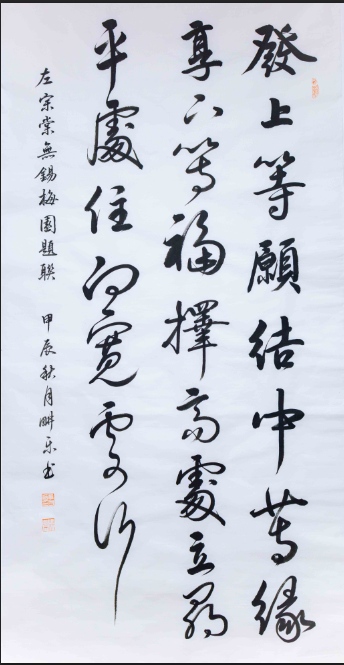 發上等願結中等緣
享下等福擇高處立尋
平處住向寬處行
左宗棠無錫梅園題聯 甲辰秋月畊乐书